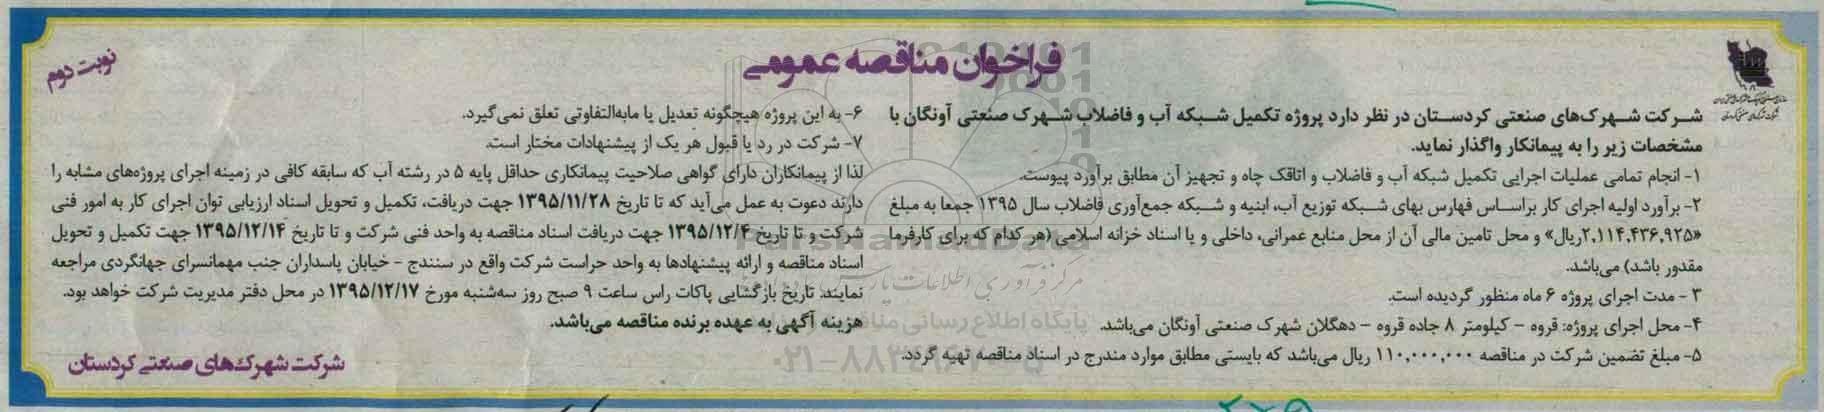 فراخوان مناقصه عمومی
نوبت دوم
شرکت شهرک‌های صنعتی کردستان در نظر دارد پروژه تکمیل شبکه آب و فاضلاب شهرک صنعتی آونگان با
مشخصات زیر را به پیمانکار واگذار نماید.
۱- انجام تمامی عملیات اجرایی تکمیل شبکه آب و فاضلاب و اتاقک چاه و تجهیز آن مطابق برآورد پیوست.
۲- برآورد اولیه اجرای کار براساس فهارس بهای شبکه توزیع آب، ابنیه و شبکه جمع‌آوری فاضلاب سال ۱۳۹۵ جمعا به مبلغ
«۲,۱۱۴,۴۳۶,۹۲۵ریال» و محل تامین مالی آن از محل منابع عمرانی، داخلی و یا اسناد خزانه اسلامی (هر کدام که برای کارفرما
مقدور باشد) می‌باشد.
۳ - مدت اجرای پروژه ۶ ماه منظور گردیده است.
۴- محل اجرای پروژه: قروه - کیلومتر ۸ جاده قروه - دهگلان شهرک صنعتی آونگان می‌باشد.
۵- مبلغ تضمین شرکت در مناقصه ۱۱۰,۰۰۰,۰۰۰ ریال می‌باشد که بایستی مطابق موارد مندرج در اسناد مناقصه تهیه گردد.
۶- به این پروژه هیچگونه تعدیل یا مابه‌التفاوتی تعلق نمی‌گیرد.
۷- شرکت در رد یا قبول هر یک از پیشنهادات مختار است.
لذا از پیمانکاران دارای گواهی صلاحیت پیمانکاری حداقل پایه ۵ در رشته آب که سابقه کافی در زمینه اجرای پروژه‌های مشابه را
دارند دعوت به عمل می‌آید که تا تاریخ ۱۳۹۵/۱۱/۲۸ جهت دریافت، تکمیل و تحویل اسناد ارزیابی توان اجرای کار به امور فنی
شرکت و تا تاریخ ۱۳۹۵/۱۲/۴ جهت دریافت اسناد مناقصه به واحد فنی شرکت و تا تاریخ ۱۳۹۵/۱۲/۱۴ جهت تکمیل و تحویل
اسناد مناقصه و ارائه پیشنهادها به واحد حراست شرکت واقع در سنندج - خیابان پاسداران جنب مهمانسرای جهانگردی مراجعه
نمایند. تاریخ بازگشایی پاکات راس ساعت ۹ صبح روز سه‌شنبه مورخ ۱۳۹۵/۱۲/۱۷ در محل دفتر مدیریت شرکت خواهد بود.
هزینه آگهی به عهده برنده مناقصه می‌باشد.
شرکت شهرک‌های صنعتی کردستان